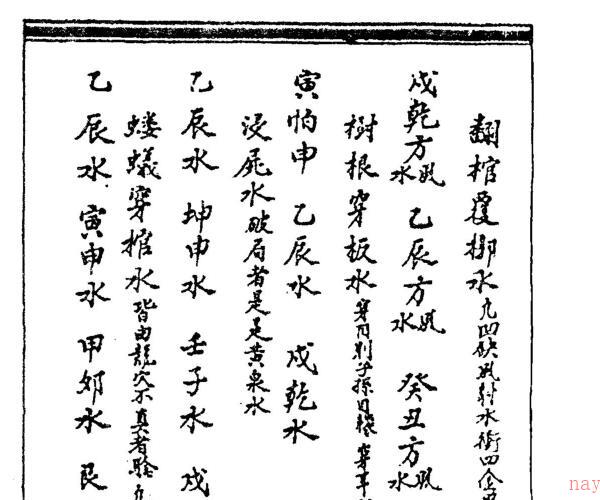 翻棺覆槨水 凹缺風射水衝四金
戌乾方風水 乙辰方風水 癸丑方風水
樹根穿板水 穿 則子孫目 穿
寅怕申 乙辰水 戌乾水
浸屍水破局者是是黄泉水
乙辰水 坤申水 壬子水 戌
螻蟻穿棺水皆由龍穴不真者驗
乙辰水 寅申水 甲卯水 艮
nay